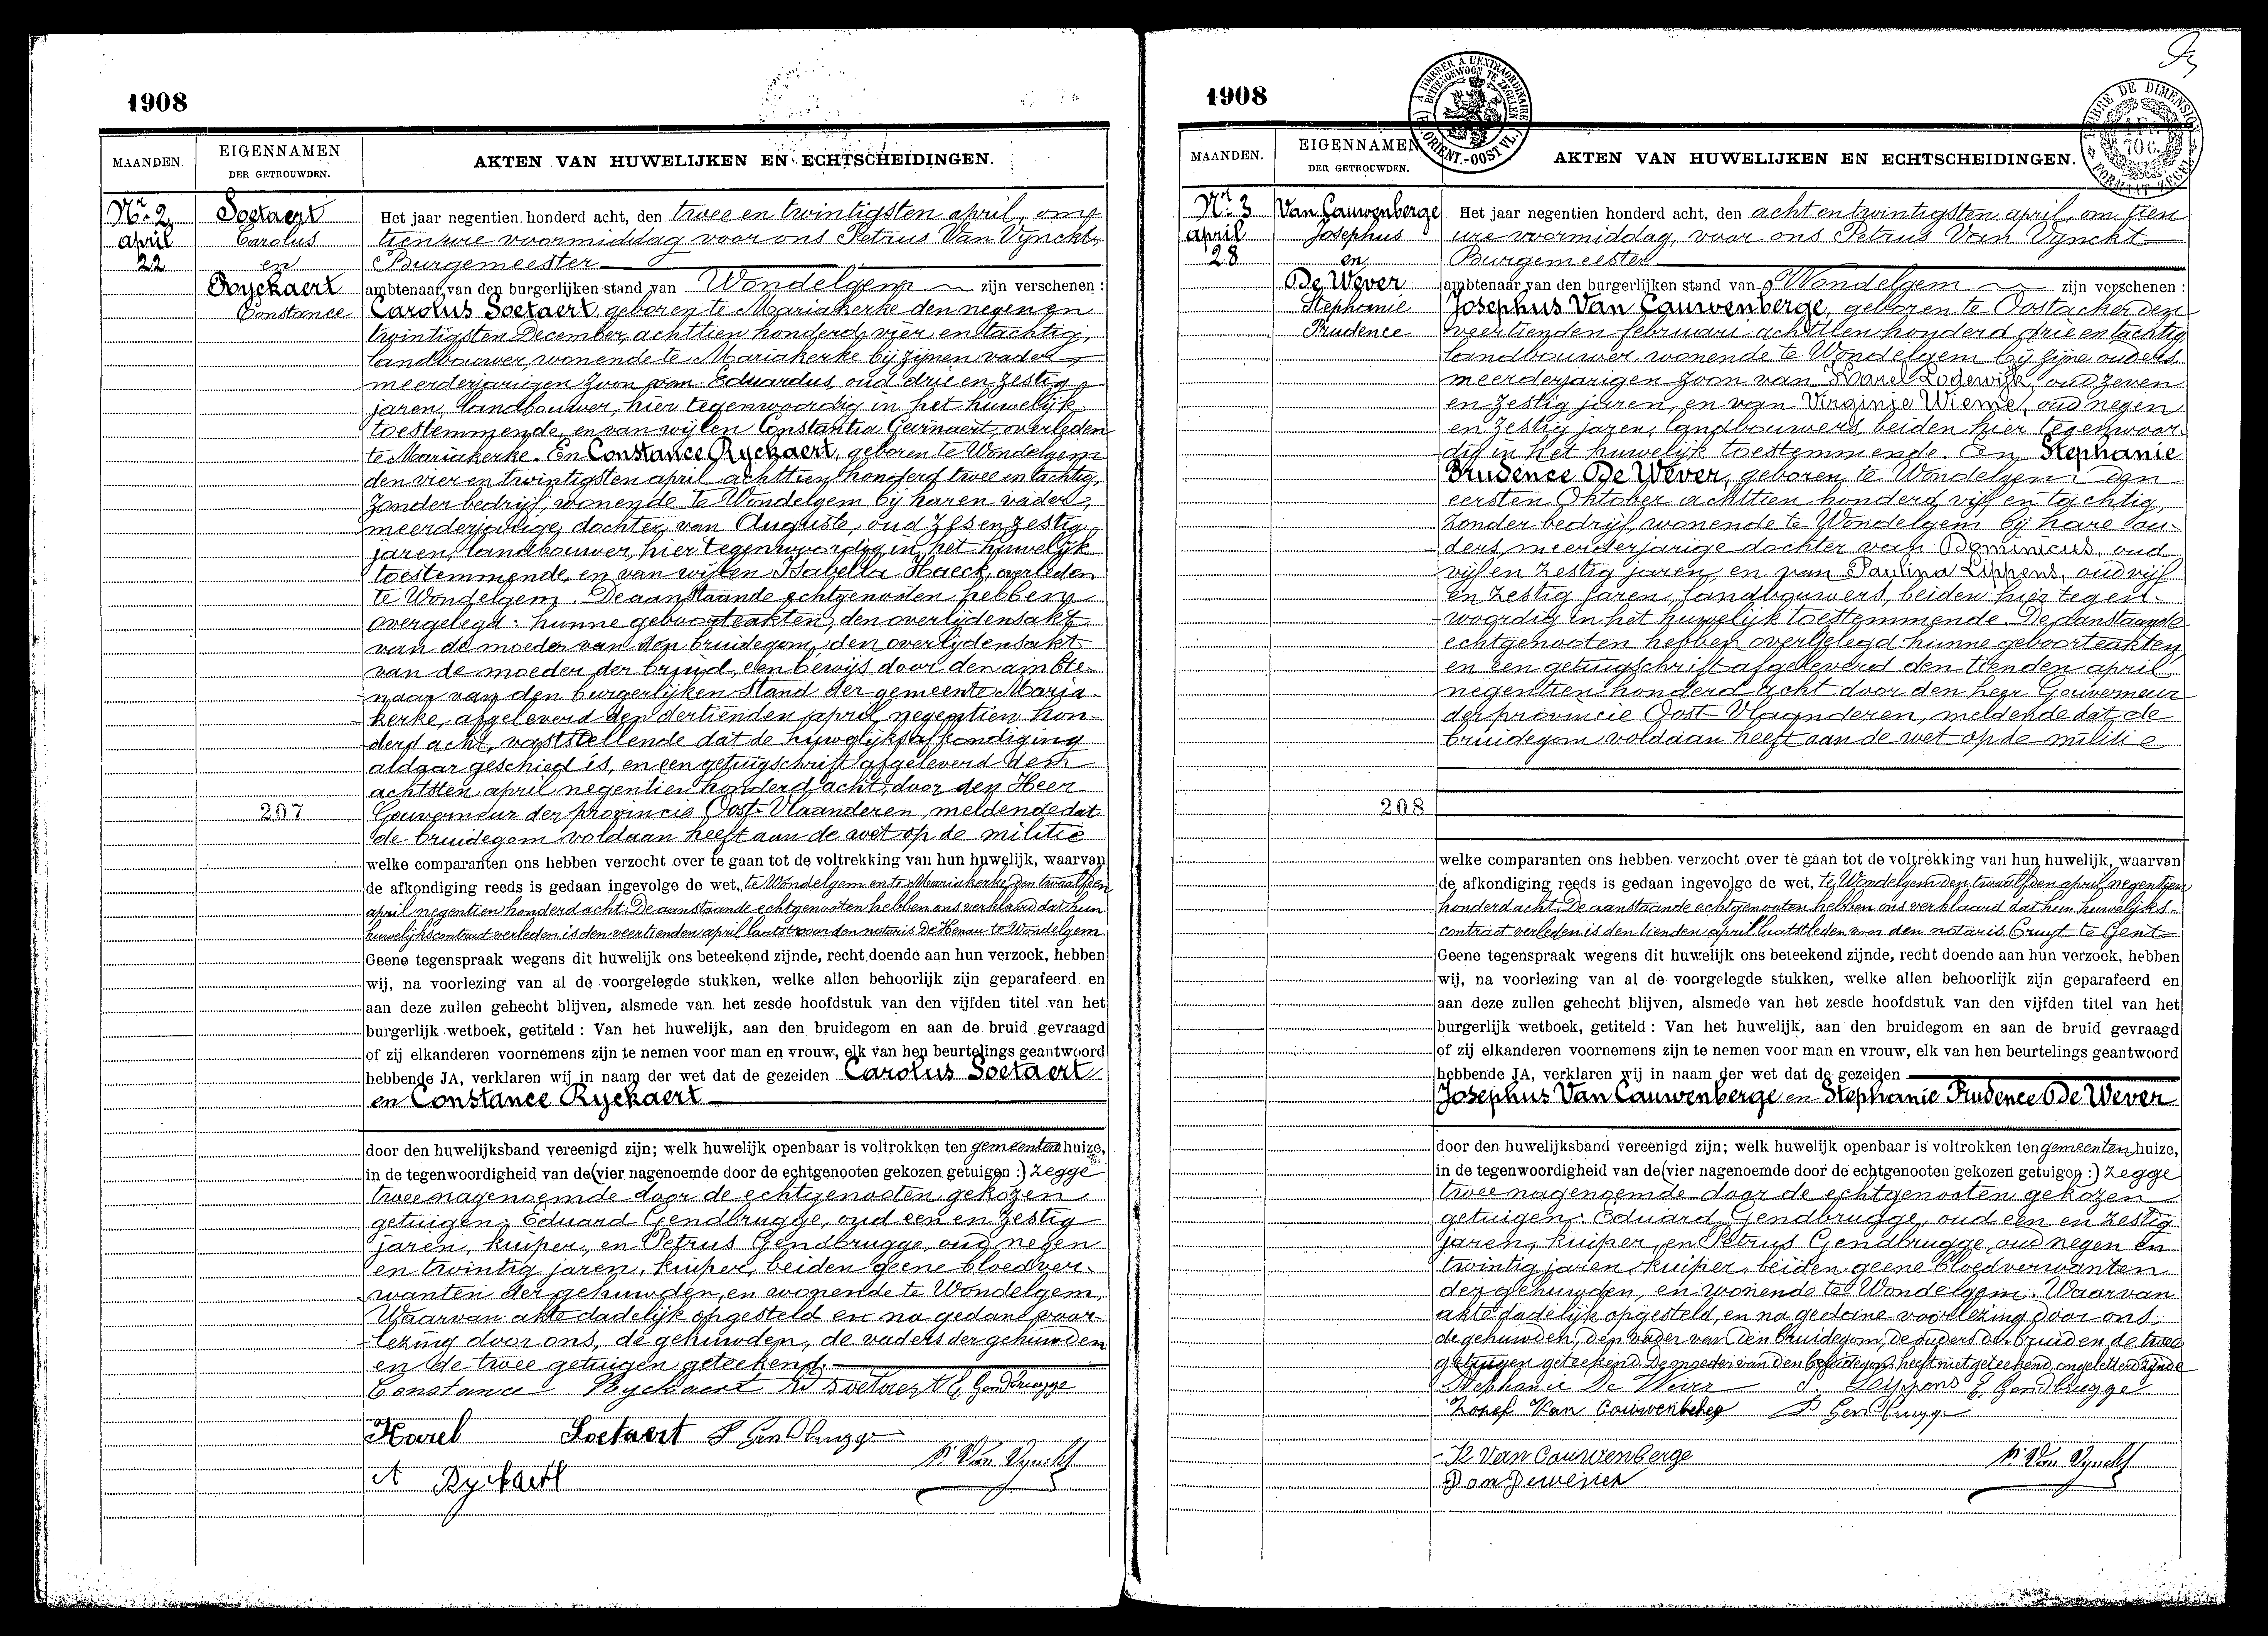 1908
MAANDEN.
EIGENNAMEN
DER GETROUWDEN.
AKTEN VAN HUWELIJKEN EN ECHTSCHEIDINGEN.
Nr. 2
april
22
Soetaert
Carolus
en
Ryckaert
Constance
Het jaar negentien honderd acht, den twee en twintigsten april, om
tien ure voormiddag voor ons Petrus Van Vynckt,
Burgemeester
ambtenaar van den burgerlijken stand van Wondelgem zijn verschenen :
Carolus Soetaert, geboren te Mariakerke den negen en
twintigsten December, achttien honderd vier en tachtig,
landbouwer, wonende te Mariakerke bij zijnen vader
meerderjarigen zoon van Eduardus, oud drie en zestig
jaren, landbouwer, hier tegenwoordig in het huwelijk
toestemmende, en van wijlen Constantia Gevinaert, overleden
te Mariakerke. En Constance Ryckaert, geboren te Wondelgem
den vier en twintigsten april achttien honderd twee en tachtig,
zonder bedrijf, wonende te Wondelgem bij haren vader,
meerderjarige dochter van Auguste, oud zes en zestig
jaren, landbouwer, hier tegenwoordig in het huwelijk
toestemmende, en van wijlen Isabella Haeck, overleden
te Wondelgem. De aanstaande echtgenooten hebben
overgelegd : hunne geboorteakten, den overlijdensakt
van de moeder van den bruidegom, den overlijdensakt
van de moeder der bruid, een bewijs door den ambte-
naar van den burgerlijken stand der gemeente Maria-
kerke, afgeleverd den dertienden april negentien hon-
derd acht, vaststellende dat de huwelijksafkondiging
aldaar geschied is, en een getuigschrift afgeleverd den
achtsten april negentien honderd acht, door den Heer
207
Gouverneur der provincie Oost-Vlaanderen, meldende dat
de bruidegom voldaan heeft aan de wet op de militie
welke comparanten ons hebben verzocht over te gaan tot de voltrekking van hun huwelijk, waarvan
de afkondiging reeds is gedaan ingevolge de wet, te Wondelgem en te Mariakerke den twaalfden
april negentien honderd acht. De aanstaande echtgenooten hebben ons verklaard dat hun
huwelijkscontract verleden is den veertienden april laatst voor den notaris De Henau te Wondelgem
Geene tegenspraak wegens dit huwelijk ons beteekend zijnde, recht doende aan hun verzoek, hebben
wij, na voorlezing van al de voorgelegde stukken, welke allen behoorlijk zijn geparafeerd en
aan deze zullen gehecht blijven, alsmede van het zesde hoofdstuk van den vijfden titel van het
burgerlijk wetboek, getiteld : Van het huwelijk, aan den bruidegom en aan de bruid gevraagd
of zij elkanderen voornemens zijn te nemen voor man en vrouw, elk van hen beurtelings geantwoord
hebbende JA, verklaren wij in naam der wet dat de gezeiden Carolus Soetaert
en Constance Ryckaert
door den huwelijksband vereenigd zijn; welk huwelijk openbaar is voltrokken ten gemeentenhuize,
in de tegenwoordigheid van de (vier nagenoemde door de echtgenooten gekozen getuigen :) zegge
twee nagenoemde door de echtgenooten gekozen
getuigen: Eduard Gendbrugge, oud een en zestig
jaren, kuiper, en Petrus Gendbrugge, oud negen
en twintig jaren, kuiper, beiden geene bloedver-
wanten der gehuwden, en wonende te Wondelgem.
Waarvan akte dadelijk opgesteld en na gedane voor-
lezing door ons, de gehuwden, de vaders der gehuwden
en de twee getuigen geteekend.
Constance Ryckaert Ed Soetaert E. Gendbrugge
Karel Soetaert P Gendbrugge
P. Van Vynckt
A Ryckaert
1908
A TIMBRER A L'EXTRAORDINAIRE
BUITENGEWOON TE ZEGELEN
(F. ORIENT.-OOST VL.)
TIMBRE DE DIMENSION
1 Fr.
70 C.
FORMAAT ZEGEL
MAANDEN.
EIGENNAMEN
DER GETROUWDEN.
AKTEN VAN HUWELIJKEN EN ECHTSCHEIDINGEN.
Nr. 3
april
28
Van Cauwenberge
Josephus
en
De Wever
Stephanie
Prudence
Het jaar negentien honderd acht, den acht en twintigsten april, om tien
ure voormiddag, voor ons Petrus Van Vynckt
Burgemeester
ambtenaar van den burgerlijken stand van Wondelgem zijn verschenen :
Josephus Van Cauwenberge, geboren te Oostacker den
veertienden februari achttien honderd drie en tachtig,
landbouwer, wonende te Wondelgem bij zijne ouders
meerderjarigen zoon van Karel Lodewijk, oud zeven
en zestig jaren, en van Virginie Wieme, oud negen
en zestig jaren, landbouwers, beiden hier tegenwoor-
dig in het huwelijk toestemmende. En Stephanie
Prudence De Wever, geboren te Wondelgem den
eersten Oktober achttien honderd vijf en tachtig,
zonder bedrijf, wonende te Wondelgem bij hare ou-
ders, meerderjarige dochter van Dominicus, oud
vijf en zestig jaren, en van Paulina Lippens, oud vijf
en zestig jaren, landbouwers, beiden hier tegen-
woordig in het huwelijk toestemmende. De aanstaande
echtgenooten hebben overgelegd hunne geboorteakten,
en een getuigschrift afgeleverd den tienden april
negentien honderd acht door den heer Gouverneur
der provincie Oost-Vlaanderen, meldende dat de
bruidegom voldaan heeft aan de wet op de militie
208
welke comparanten ons hebben verzocht over te gaan tot de voltrekking van hun huwelijk, waarvan
de afkondiging reeds is gedaan ingevolge de wet, te Wondelgem den twaalfden april negentien
honderd acht. De aanstaande echtgenooten hebben ons verklaard dat hun huwelijks-
contract verleden is den tienden april laatstleden voor den notaris Cruyt te Gent
Geene tegenspraak wegens dit huwelijk ons beteekend zijnde, recht doende aan hun verzoek, hebben
wij, na voorlezing van al de voorgelegde stukken, welke allen behoorlijk zijn geparafeerd en
aan deze zullen gehecht blijven, alsmede van het zesde hoofdstuk van den vijfden titel van het
burgerlijk wetboek, getiteld : Van het huwelijk, aan den bruidegom en aan de bruid gevraagd
of zij elkanderen voornemens zijn te nemen voor man en vrouw, elk van hen beurtelings geantwoord
hebbende JA, verklaren wij in naam der wet dat de gezeiden
Josephus Van Cauwenberge en Stephanie Prudence De Wever
door den huwelijksband vereenigd zijn; welk huwelijk openbaar is voltrokken ten gemeentenhuize,
in de tegenwoordigheid van de (vier nagenoemde door de echtgenooten gekozen getuigen :) zegge
twee nagenoemde door de echtgenooten gekozen
getuigen: Eduard Gendbrugge, oud een en zestig
jaren, kuiper, en Petrus Gendbrugge, oud negen en
twintig jaren, kuiper, beiden geene bloedverwanten
der gehuwden, en wonende te Wondelgem. Waarvan
akte dadelijk opgesteld, en na gedane voorlezing door ons,
de gehuwden, den vader van den bruidegom, de ouders der bruid en de twee
getuigen geteekend. De moeder van den bruidegom heeft niet geteekend, ongeletterd zijnde
Stephanie De Wever P Lippens E. Gendbrugge
Zozef Van Cauwenberge P Gendbrugge
K Van Cauwenberge
P. Van Vynckt
Dom Dewever